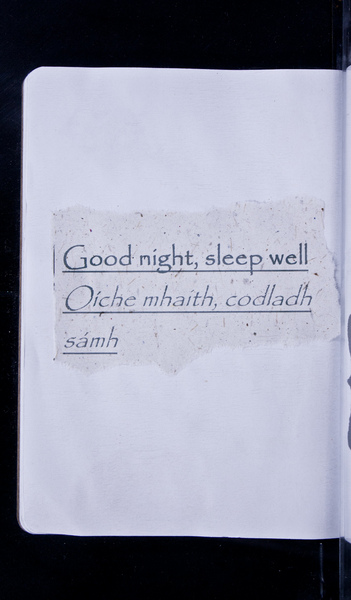 Good night, sleep well
Oíche mhaith, codladh
sámh